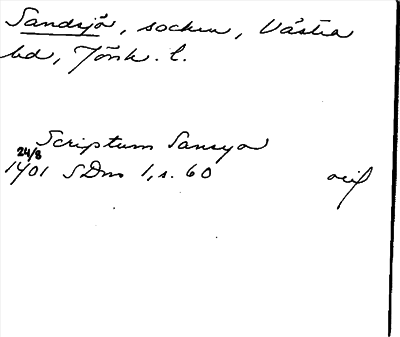 Sandsjö, socken, Västra
hd, Jönk. l.
Scriptum Sansyo
24/8
1401 SDns 1, s. 60 orig